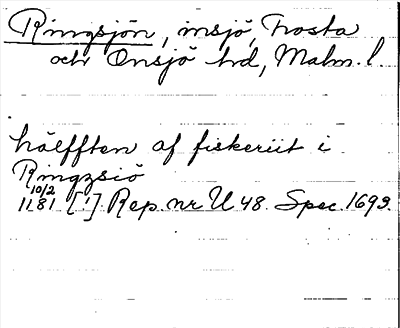 Ringsjön, insjö, Frosta
och Onsjö hd, Malm. l.
hälfften af fiskeriit i
Ringzsiö
10/2
1181 [!]. Rep. nr U 48. Spec. 1693.